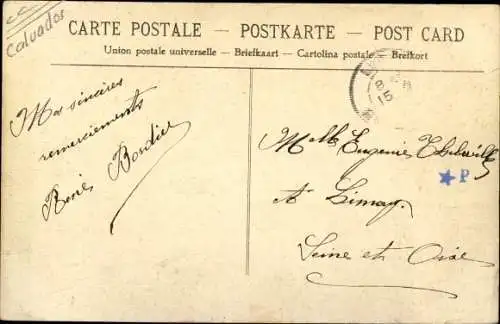 Calvados
CARTE POSTALE — POSTKARTE — POST CARD
Union postale universelle — Briefkaart — Cartolina postale — Brefkort
Mes sincères
remerciements
René Bordier
Melle Eugenie
P
A Limay
Seine et Oise